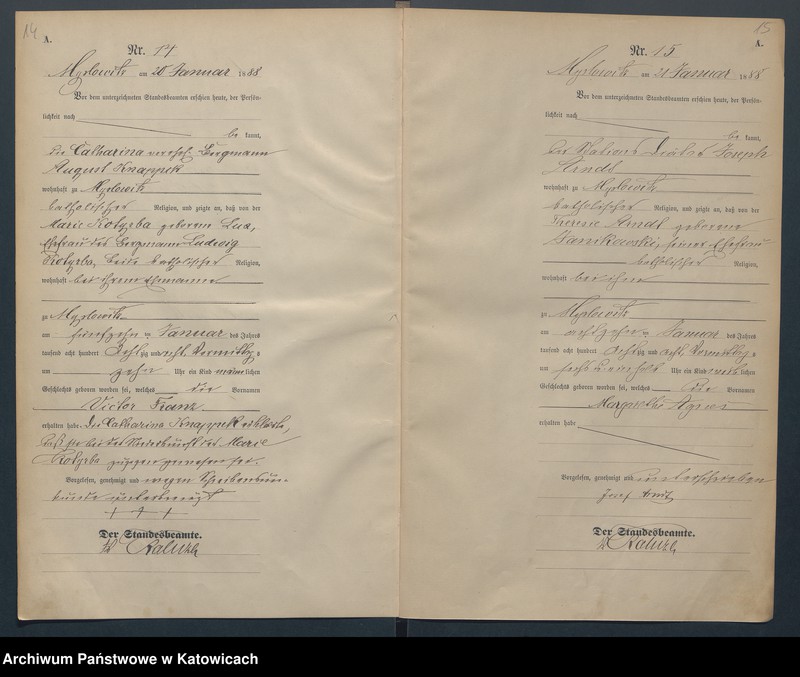 14
A.
Nr. 14
Myslowitz am 20 Januar 1888
Vor dem unterzeichneten Standesbeamten erschien heute, der Persön-
lichkeit nach
be kannt,
die Catharina verehel. Bergmann
August Knappek
wohnhaft zu Myslowitz
katholischer Religion, und zeigte an, daß von der
Marie Kotyrba geborene
Ehefrau des Bergmann Ludwig
Kotyrba, beide katholischer Religion,
wohnhaft bei ihrem Ehemanne
zu Myslowitz
am fünfzehn ten Januar des Jahres
tausend acht hundert Acht zig und acht, Vormittags
um zehn Uhr ein Kind männlichen
Geschlechts geboren worden sei, welches die Vornamen
Victor Franz
erhalten habe. Die Catharina Knappek erklärte,
daß sie bei der Niederkunft der Marie
Kotyrba zugegen gewesen sei.
Vorgelesen, genehmigt und wegen Schreibenun-
kunde unterkreuzt
+ + +
Der Standesbeamte.
15
A.
Nr. 15
Myslowitz am 21 Januar 1888
Vor dem unterzeichneten Standesbeamten erschien heute, der Persön-
lichkeit nach
be kannt,
der Stations Diätar Joseph
Arndt
wohnhaft zu Myslowitz
katholischer Religion, und zeigte an, daß von der
Theresie Arndt geborene
Janikowski, seiner Ehefrau
katholischer Religion,
wohnhaft bei ihm
zu Myslowitz
am achtzehn ten Januar des Jahres
tausend acht hundert Acht zig und acht, Vormittags
um sechs und einhalb Uhr ein Kind weiblichen
Geschlechts geboren worden sei, welches die Vornamen
Margarethe Agnes
erhalten habe
Vorgelesen, genehmigt und unterschrieben
Josef Arndt
Der Standesbeamte.
Archiwum Państwowe w Katowicach